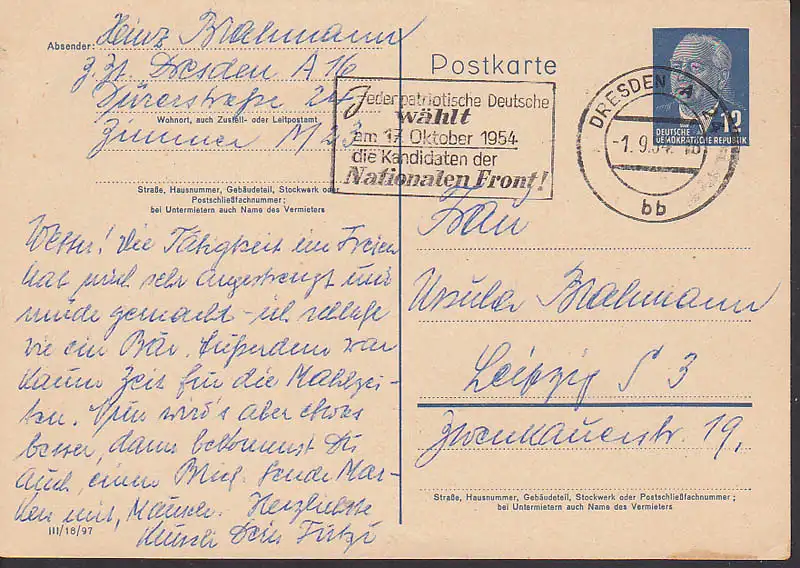 Absender: Heinz Brahmann
z. Zt. Dresden A 16
Dürerstraße 24
Wohnort, auch Zustell- oder Leitpostamt
Zimmer M 23
Straße, Hausnummer, Gebäudeteil, Stockwerk oder
Postschließfachnummer;
bei Untermietern auch Name des Vermieters
Wetter! Die Tätigkeit im Freien
hat mich sehr angestrengt und
müde gemacht - ich schlafe
wie ein Bär. Außerdem war
kaum Zeit für die Mahlzei-
ten. Nun wird's aber etwas
besser, dann bekommst Du
auch einen Brief. Sende Mar-
ken mit, Herzlichste
Dein
III/18/97
Postkarte
Jeder patriotische Deutsche
wählt
am 17. Oktober 1954
die Kandidaten der
Nationalen Front!
DRESDEN A
-1.9.54.
bb
12
DEUTSCHE
DEMOKRATISCHE REPUBLIK
Frau
Ursula Brahmann
Leipzig S 3
Zwenkauerstr. 19,
Straße, Hausnummer, Gebäudeteil, Stockwerk oder Postschließfachnummer;
bei Untermietern auch Name des Vermieters